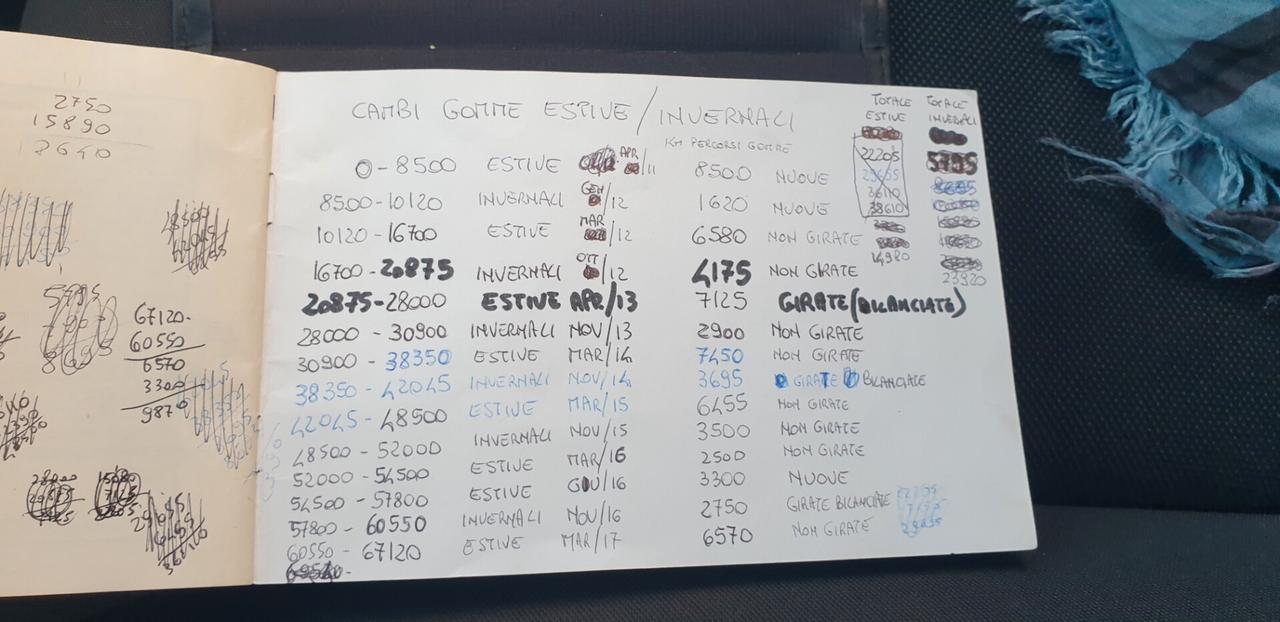 2750
15890
2640
5795
8695
67120-
60550
6570
3300
9870
CAMBI GOMME ESTIVE / INVERNALI
TOTALE ESTIVE TOTALE INVERNALI
KM PERCORSI GOMME
0 - 8500 ESTIVE APR /11 8500 NUOVE
8500 - 10120 INVERNALI GEN /12 1620 NUOVE
10120 - 16700 ESTIVE MAR /12 6580 NON GIRATE
16700 - 20875 INVERNALI OTT /12 4175 NON GIRATE
20875 - 28000 ESTIVE APR/13 7125 GIRATE (BILANCIATE)
28000 - 30900 INVERNALI NOV/13 2900 NON GIRATE
30900 - 38350 ESTIVE MAR/14 7450 NON GIRATE
38350 - 42045 INVERNALI NOV/14 3695 GIRATE BILANCIATE
42045 - 48500 ESTIVE MAR/15 6455 NON GIRATE
48500 - 52000 INVERNALI NOV/15 3500 NON GIRATE
52000 - 54500 ESTIVE MAR/16 2500 NON GIRATE
54500 - 57800 ESTIVE GIU/16 3300 NUOVE
57800 - 60550 INVERNALI NOV/16 2750 GIRATE BILANCIATE
60550 - 67120 ESTIVE MAR/17 6570 NON GIRATE
22205
5795
29655
8695
36110
38610
14920
23920